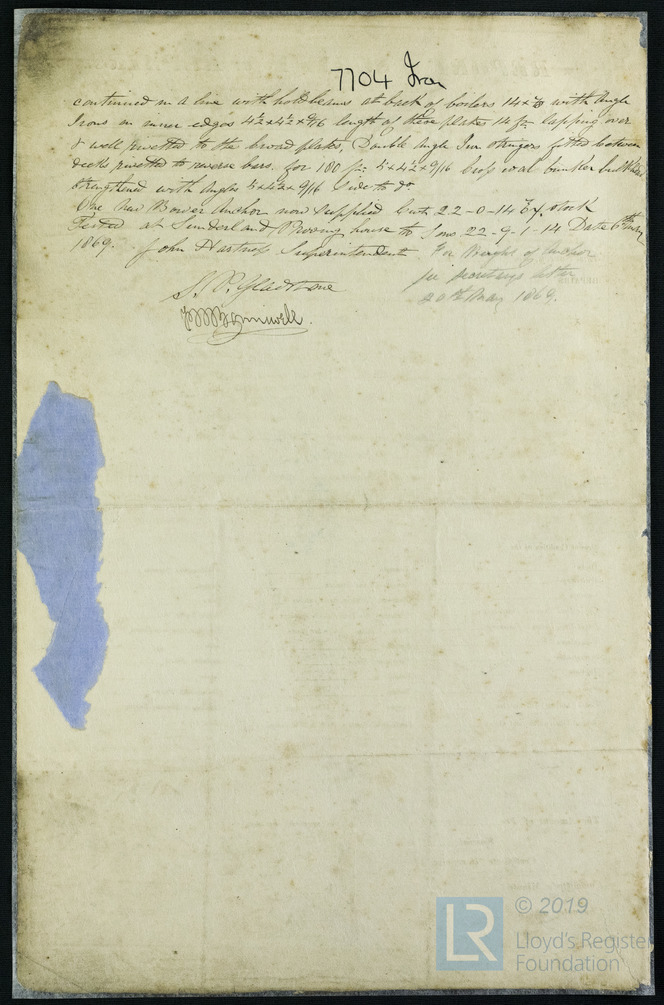 7704 Iron
continued in a line with hold beams at back of boilers 14 x with Angle
Irons on inner edges 4½ x 4½ x 9/16 length of these plates 14 ft lapping over
& well rivetted to the broad plates, Double Angle Iron stringers fitted between
decks rivetted to reverse bars. for 180 ft 5 x 4½ x 9/16 coal bunker
strengthened with Angles 5 x 4½ x 9/16 side to do
One New Bower Anchor now supplied Cwt 22-0-14 Ex. stock
Tested at Sunderland Proving house to Tons 22-9-1-14 Date 6th
1869. John Hartness Superintendent For Weight of Anchor
see Secretarys letter
20th May 1869.
S. P. Gladstone
© 2019
LR
Lloyd's Register
Foundation